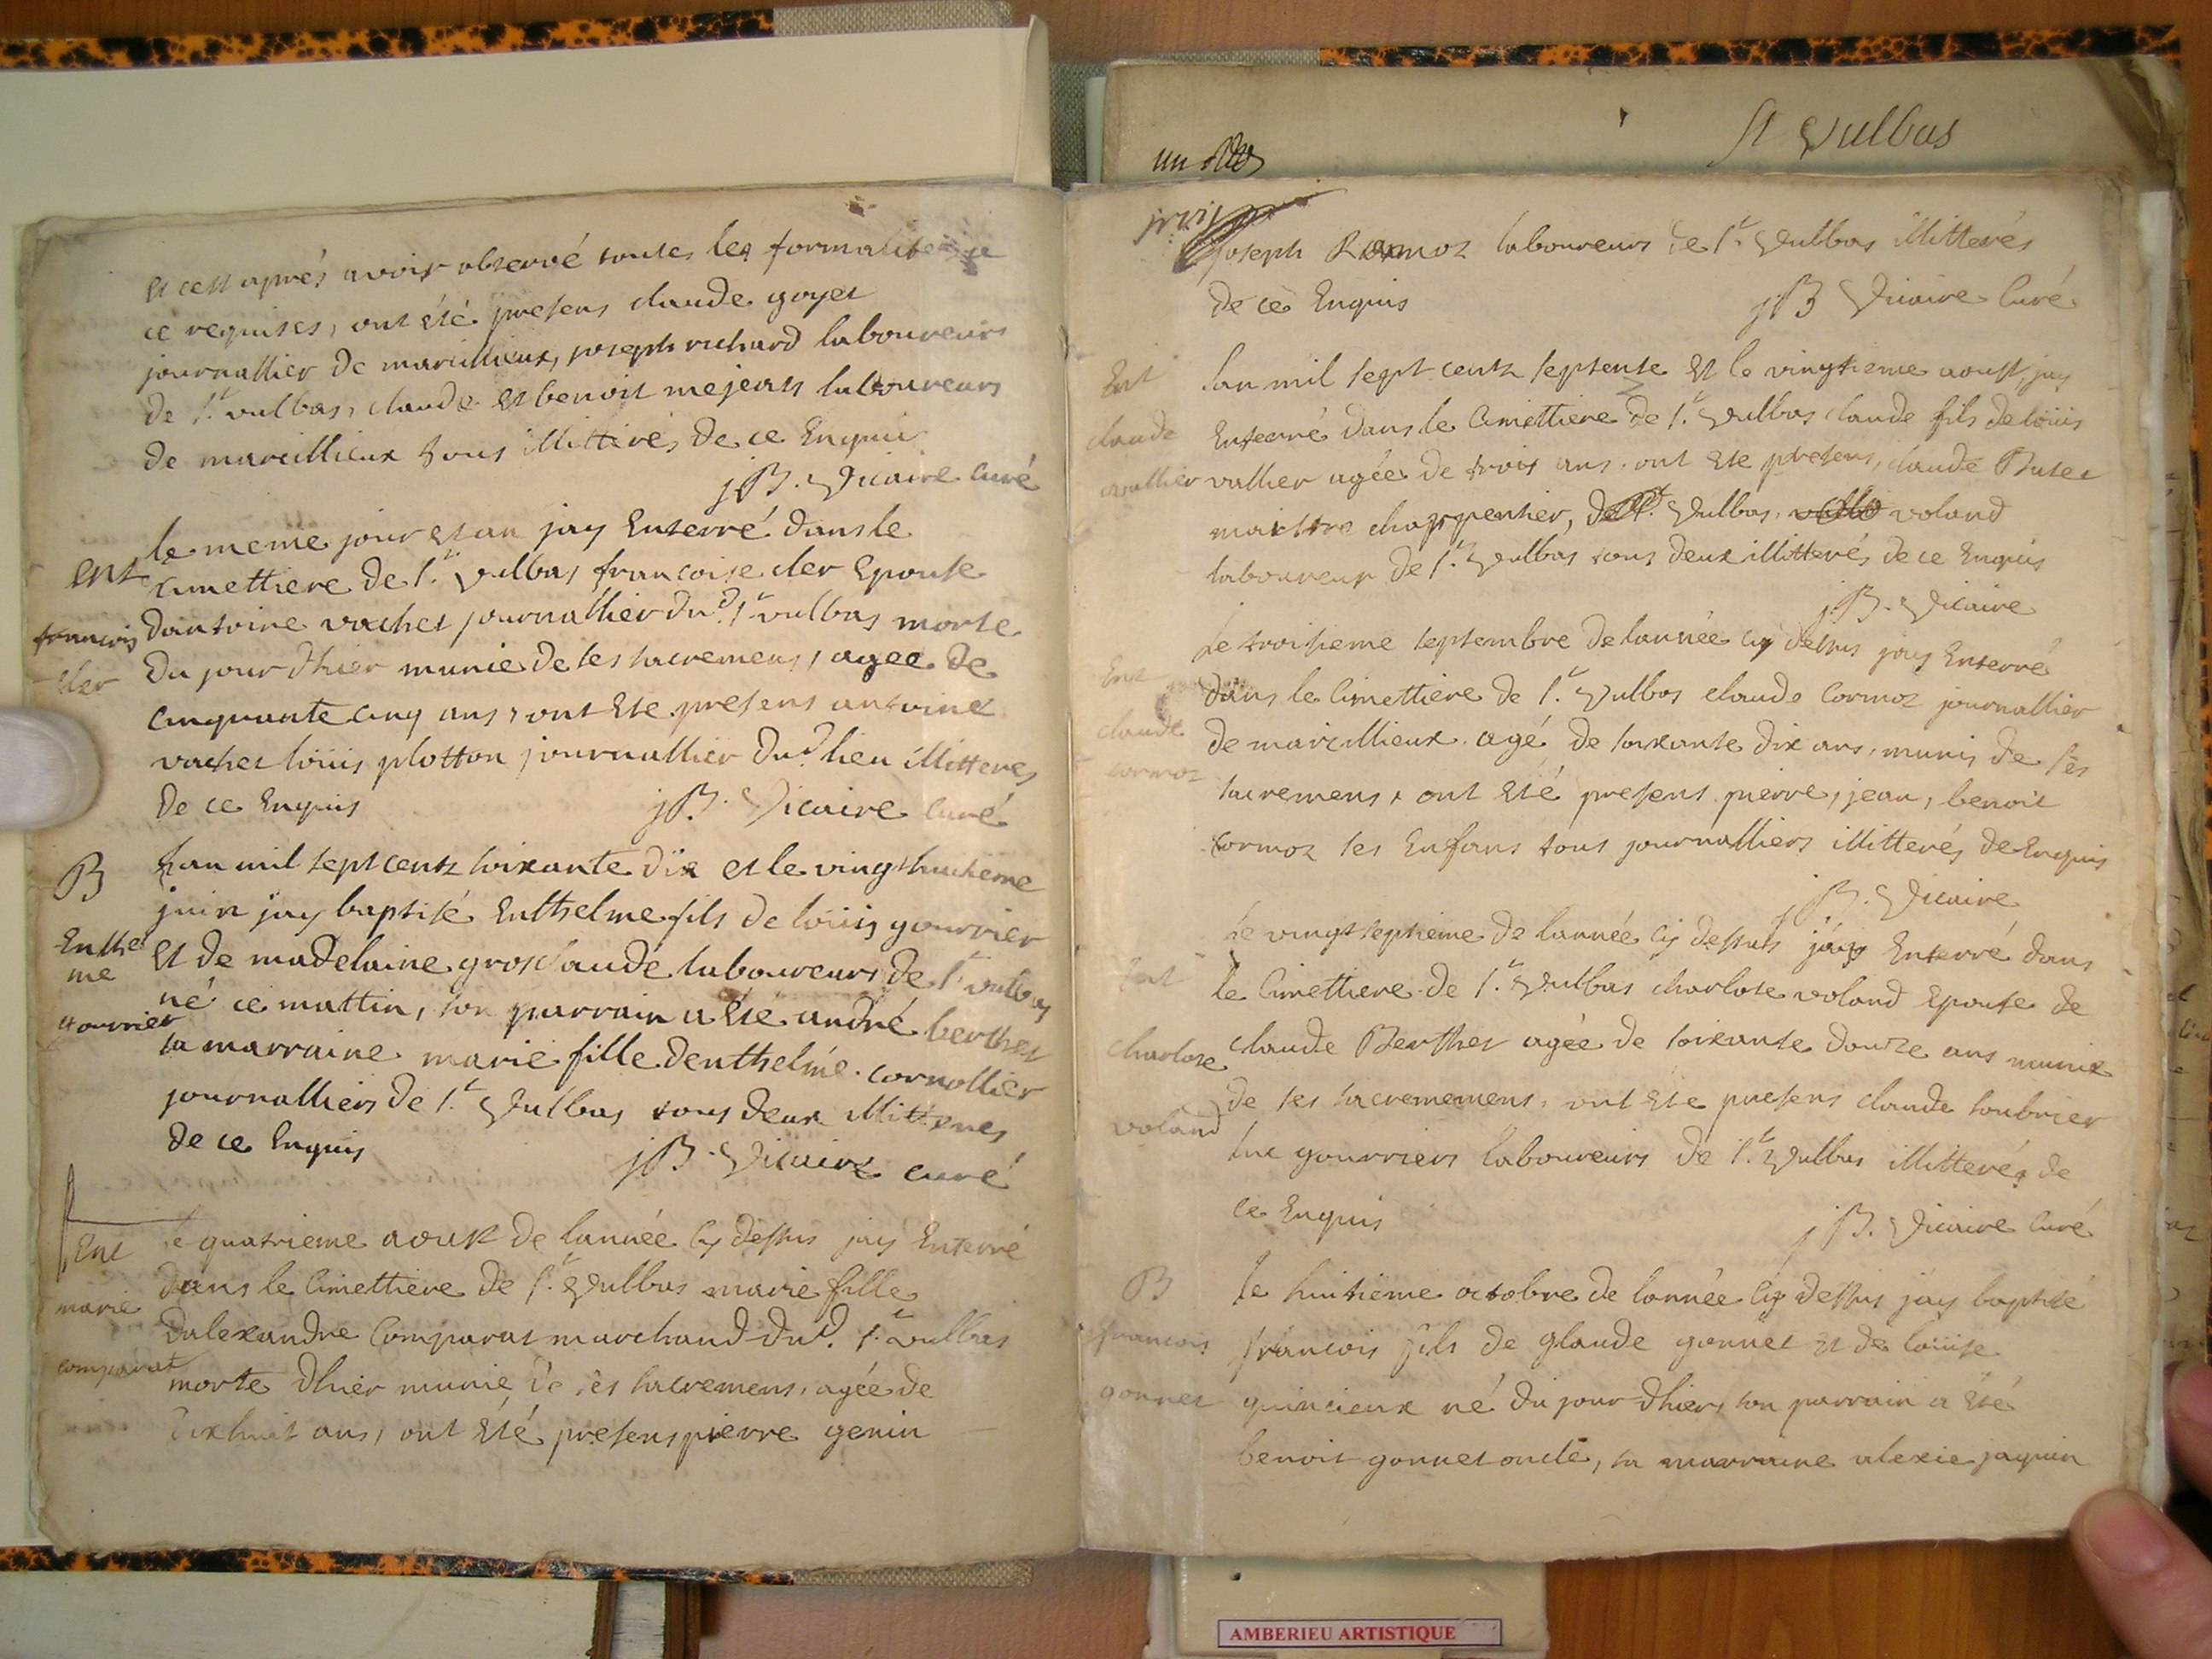 et cest aprés avoir observé toutes les formalité
ce requises, ont été presens claude goyet
journallier de marcillieux, joseph richard laboureurs
de st. vulbas, claude et benoit mejeats laboureurs
de marcillieux tous illitterés de ce Enquis
jB. Vicaire curé
ent
francois
cler
le meme jour et an jay Enterré dans le
cimettiere de st. Vulbas francoise cler Epouse
dantoine vachet journallier dud. st vulbas morte
du jour dhier munie de ses sacremens, agee de
cinquante cinq ans, ont ete presens antoine
vachet loüis plotton journallier dud. lieu illitteres
de ce Enquis
jB. Vicaire curé
B
Enthel
me
gourrier
Lan mil sept centz soixante dix et le vingthuitieme
juin jay baptisé Enthelme fils de loüis gourrier
et de madelaine grosclaude laboureurs de st vulbas
né ce mattin, son parrain a ete andré berthet
sa marraine marie fille denthelme cornollier
journalliers de st. Vulbas tous deux illitterés
de ce Enquis
jB. Vicaire curé
Ent
marie
comparat
le quatrieme aoust de lannée cy dessus jay Enterré
dans le Cimettiere de st. Vulbas marie fille
dalexandre Comparat marchand dud. st. vulbas
morte dhier munie de ses sacremens, agée de
dixhuit ans, ont été presens pierre genin
St Vulbas
un
joseph Ramoz laboureurs de st. Vulbas illitterés
de ce Enquis
jB Vicaire Curé
Ent
claude
vallier
Lan mil sept centz septente et le vingtieme aoust jay
Enterré dans le Cimettiere de st. Vulbas claude fils de loüis
vallier agée de trois ans, ont ete presens, claude Butet
maistre charpentier, de st. Vulbas, voland
laboureur de st. Vulbas tous deux illitterés de ce Enquis
jB. Vicaire
Ent
claude
cormoz
Le troisieme septembre de lannée cy dessus jay Enterré
dans le Cimettiere de st. Vulbas claude Cormoz journallier
de marcillieux agé de soixante dix ans, munis de ses
sacremens, ont été presens pierre, jean, benoit
cormoz ses Enfans tous journalliers illitterés de Enquis
jB. Vicaire
Ent
charlote
voland
Le vingtseptieme de lannée cy dessus jay Enterré dans
le Cimettiere de st. Vulbas charlote voland Epouse de
claude Berthet agée de soixante douze ans munie
de ses sacrememens, ont ete presens claude soubrier
luc gourriers laboureurs de st. Vulbas illitterés de
ce Enquis
jB. Vicaire Curé
B
francois
gonnet
le huitieme octobre de lannée cy dessus jay baptisé
francois fils de glaude gonnet et de loüise
quincieux né du jour dhier, son parrain a été
benoit gonnet oncle, sa marraine alexie jaquin
AMBERIEU ARTISTIQUE